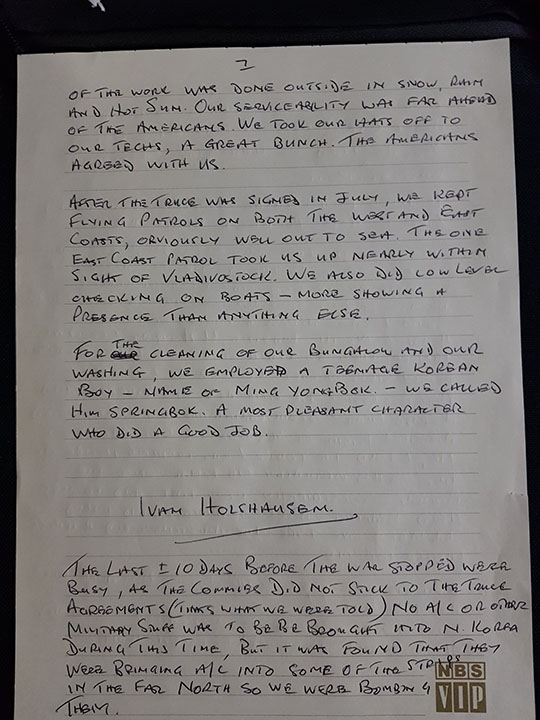 7
OF THE WORK WAS DONE OUTSIDE IN SNOW, RAIN
AND HOT SUN. OUR SERVICEABILITY WAS FAR AHEAD
OF THE AMERICANS. WE TOOK OUR HATS OFF TO
OUR TECHS, A GREAT BUNCH. THE AMERICANS
AGREED WITH US.
AFTER THE TRUCE WAS SIGNED IN JULY, WE KEPT
FLYING PATROLS ON BOTH THE WEST AND EAST
COASTS, OBVIOUSLY WELL OUT TO SEA. THE ONE
EAST COAST PATROL TOOK US UP NEARLY WITHIN
SIGHT OF VLADIVOSTOCK. WE ALSO DID LOW LEVEL
CHECKING ON BOATS – MORE SHOWING A
PRESENCE THAN ANYTHING ELSE.
FOR THE CLEANING OF OUR BUNGALOW AND OUR
WASHING, WE EMPLOYED A TEENAGE KOREAN
BOY – NAME OF MING YONGBOK. – WE CALLED
HIM SPRINGBOK. A MOST PLEASANT CHARACTER
WHO DID A GOOD JOB.
IVAN HOLSHAUSEN.
THE LAST ± 10 DAYS BEFORE THE WAR STOPPED WERE
BUSY, AS THE COMMIES DID NOT STICK TO THE TRUCE
AGREEMENTS (THATS WHAT WE WERE TOLD) NO A/C OR OTHER
MILITARY STUFF WAS TO BE BE BROUGHT INTO N. KOREA
DURING THIS TIME, BUT IT WAS FOUND THAT THEY
WERE BRINGING A/C INTO SOME OF THE STRIPS
IN THE FAR NORTH SO WE WERE BOMBING
THEM.
NBS
VIP